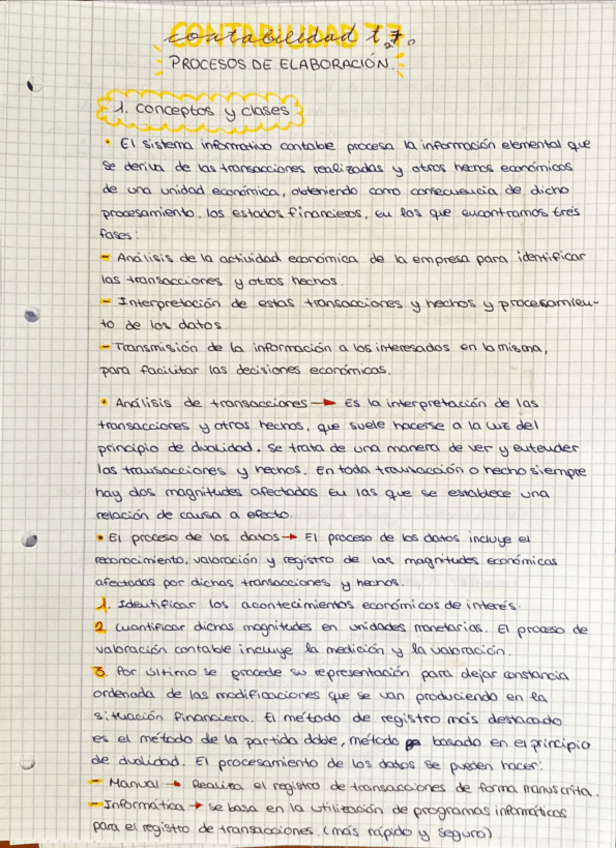 CONTABILIDAD T.7.
PROCESOS DE ELABORACIÓN.
1. conceptos y clases
• El sistema informativo contable procesa la información elemental que
se deriva de las transacciones realizadas y otros hechos económicos
de una unidad económica, obteniendo como consecuencia de dicho
procesamiento, los estados financieros, en los que encontramos tres
fases:
- Análisis de la actividad económica de la empresa para identificar
las transacciones y otros hechos.
- Interpretación de estas transacciones y hechos y procesamien-
to de los datos
- Transmisión de la información a los interesados en la misma,
para facilitar las decisiones económicas.
• Análisis de transacciones → Es la interpretación de las
transacciones y otros hechos, que suele hacerse a la luz del
principio de dualidad. Se trata de una manera de ver y entender
las transacciones y hechos. En toda transacción o hecho siempre
hay dos magnitudes afectadas en las que se establece una
relación de causa a efecto.
• El proceso de los datos → El proceso de los datos incluye el
reconocimiento, valoración y registro de las magnitudes económicas
afectadas por dichas transacciones y hechos.
1. Identificar los acontecimientos económicos de interés.
2. Cuantificar dichas magnitudes en unidades monetarias. El proceso de
valoración contable incluye la medición y la valoración.
3. Por último se procede su representación para dejar constancia
ordenada de las modificaciones que se van produciendo en la
situación financiera. El método de registro más destacado
es el método de la partida doble, método basado en el principio
de dualidad. El procesamiento de los datos se pueden hacer:
- Manual → Realiza el registro de transacciones de forma manuscrita.
- Informática → se basa en la utilización de programas informáticos
para el registro de transacciones. (más rápido y seguro)